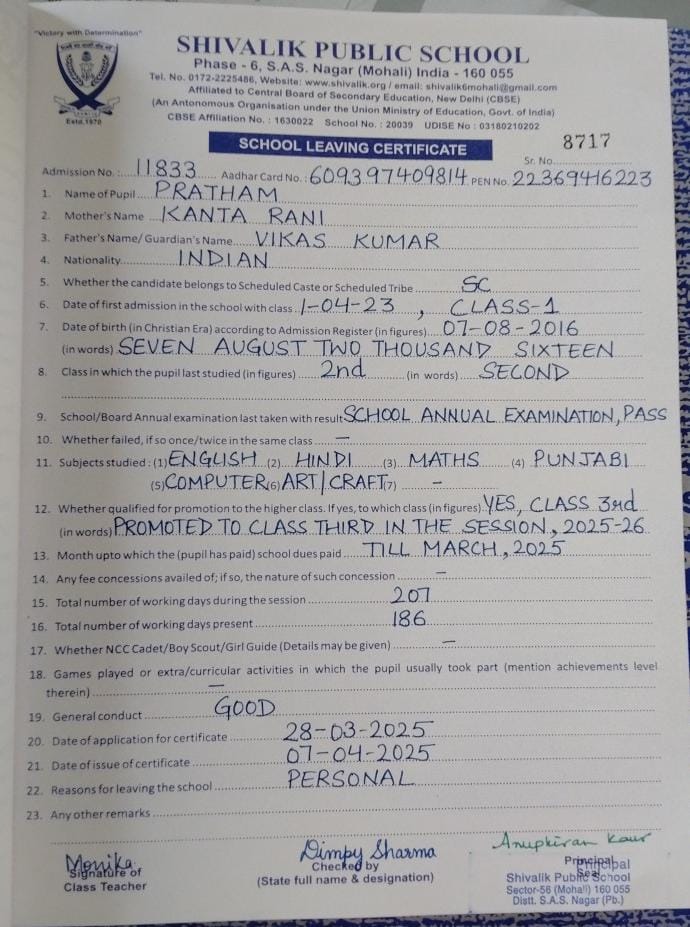 "Victory with Determination"
Estd.1970
SHIVALIK PUBLIC SCHOOL
Phase - 6, S.A.S. Nagar (Mohali) India - 160 055
Tel. No. 0172-2225486, Website: www.shivalik.org / email: shivalik6mohali@gmail.com
Affiliated to Central Board of Secondary Education, New Delhi (CBSE)
(An Antonomous Organisation under the Union Ministry of Education, Govt. of India)
CBSE Affiliation No. : 1630022 School No. : 20039 UDISE No : 03180210202
SCHOOL LEAVING CERTIFICATE
Sr. No. 8717
Admission No.: 11833 Aadhar Card No.: 609397409814 PEN No. 22369416223
1. Name of Pupil PRATHAM
2. Mother's Name KANTA RANI
3. Father's Name/ Guardian's Name VIKAS KUMAR
4. Nationality INDIAN
5. Whether the candidate belongs to Scheduled Caste or Scheduled Tribe SC
6. Date of first admission in the school with class 1-04-23, CLASS-1
7. Date of birth (in Christian Era) according to Admission Register (in figures) 07-08-2016
(in words) SEVEN AUGUST TWO THOUSAND SIXTEEN
8. Class in which the pupil last studied (in figures) 2nd (in words) SECOND
9. School/Board Annual examination last taken with result SCHOOL ANNUAL EXAMINATION, PASS
10. Whether failed, if so once/twice in the same class —
11. Subjects studied : (1) ENGLISH (2) HINDI (3) MATHS (4) PUNJABI
(5) COMPUTER (6) ART/CRAFT (7) -
12. Whether qualified for promotion to the higher class. If yes, to which class (in figures) YES, CLASS 3rd
(in words) PROMOTED TO CLASS THIRD IN THE SESSION, 2025-26
13. Month upto which the (pupil has paid) school dues paid TILL MARCH, 2025
14. Any fee concessions availed of; if so, the nature of such concession —
15. Total number of working days during the session 207
16. Total number of working days present 186
17. Whether NCC Cadet/Boy Scout/Girl Guide (Details may be given) —
18. Games played or extra/curricular activities in which the pupil usually took part (mention achievements level
therein) —
19. General conduct GOOD
20. Date of application for certificate 28-03-2025
21. Date of issue of certificate 07-04-2025
22. Reasons for leaving the school PERSONAL
23. Any other remarks
Monika
Signature of
Class Teacher
Dimpy Sharma
Checked by
(State full name & designation)
Anupkiran Kaur
Principal
Seal
Principal
Shivalik Public School
Sector-56 (Mohali) 160 055
Distt. S.A.S. Nagar (Pb.)